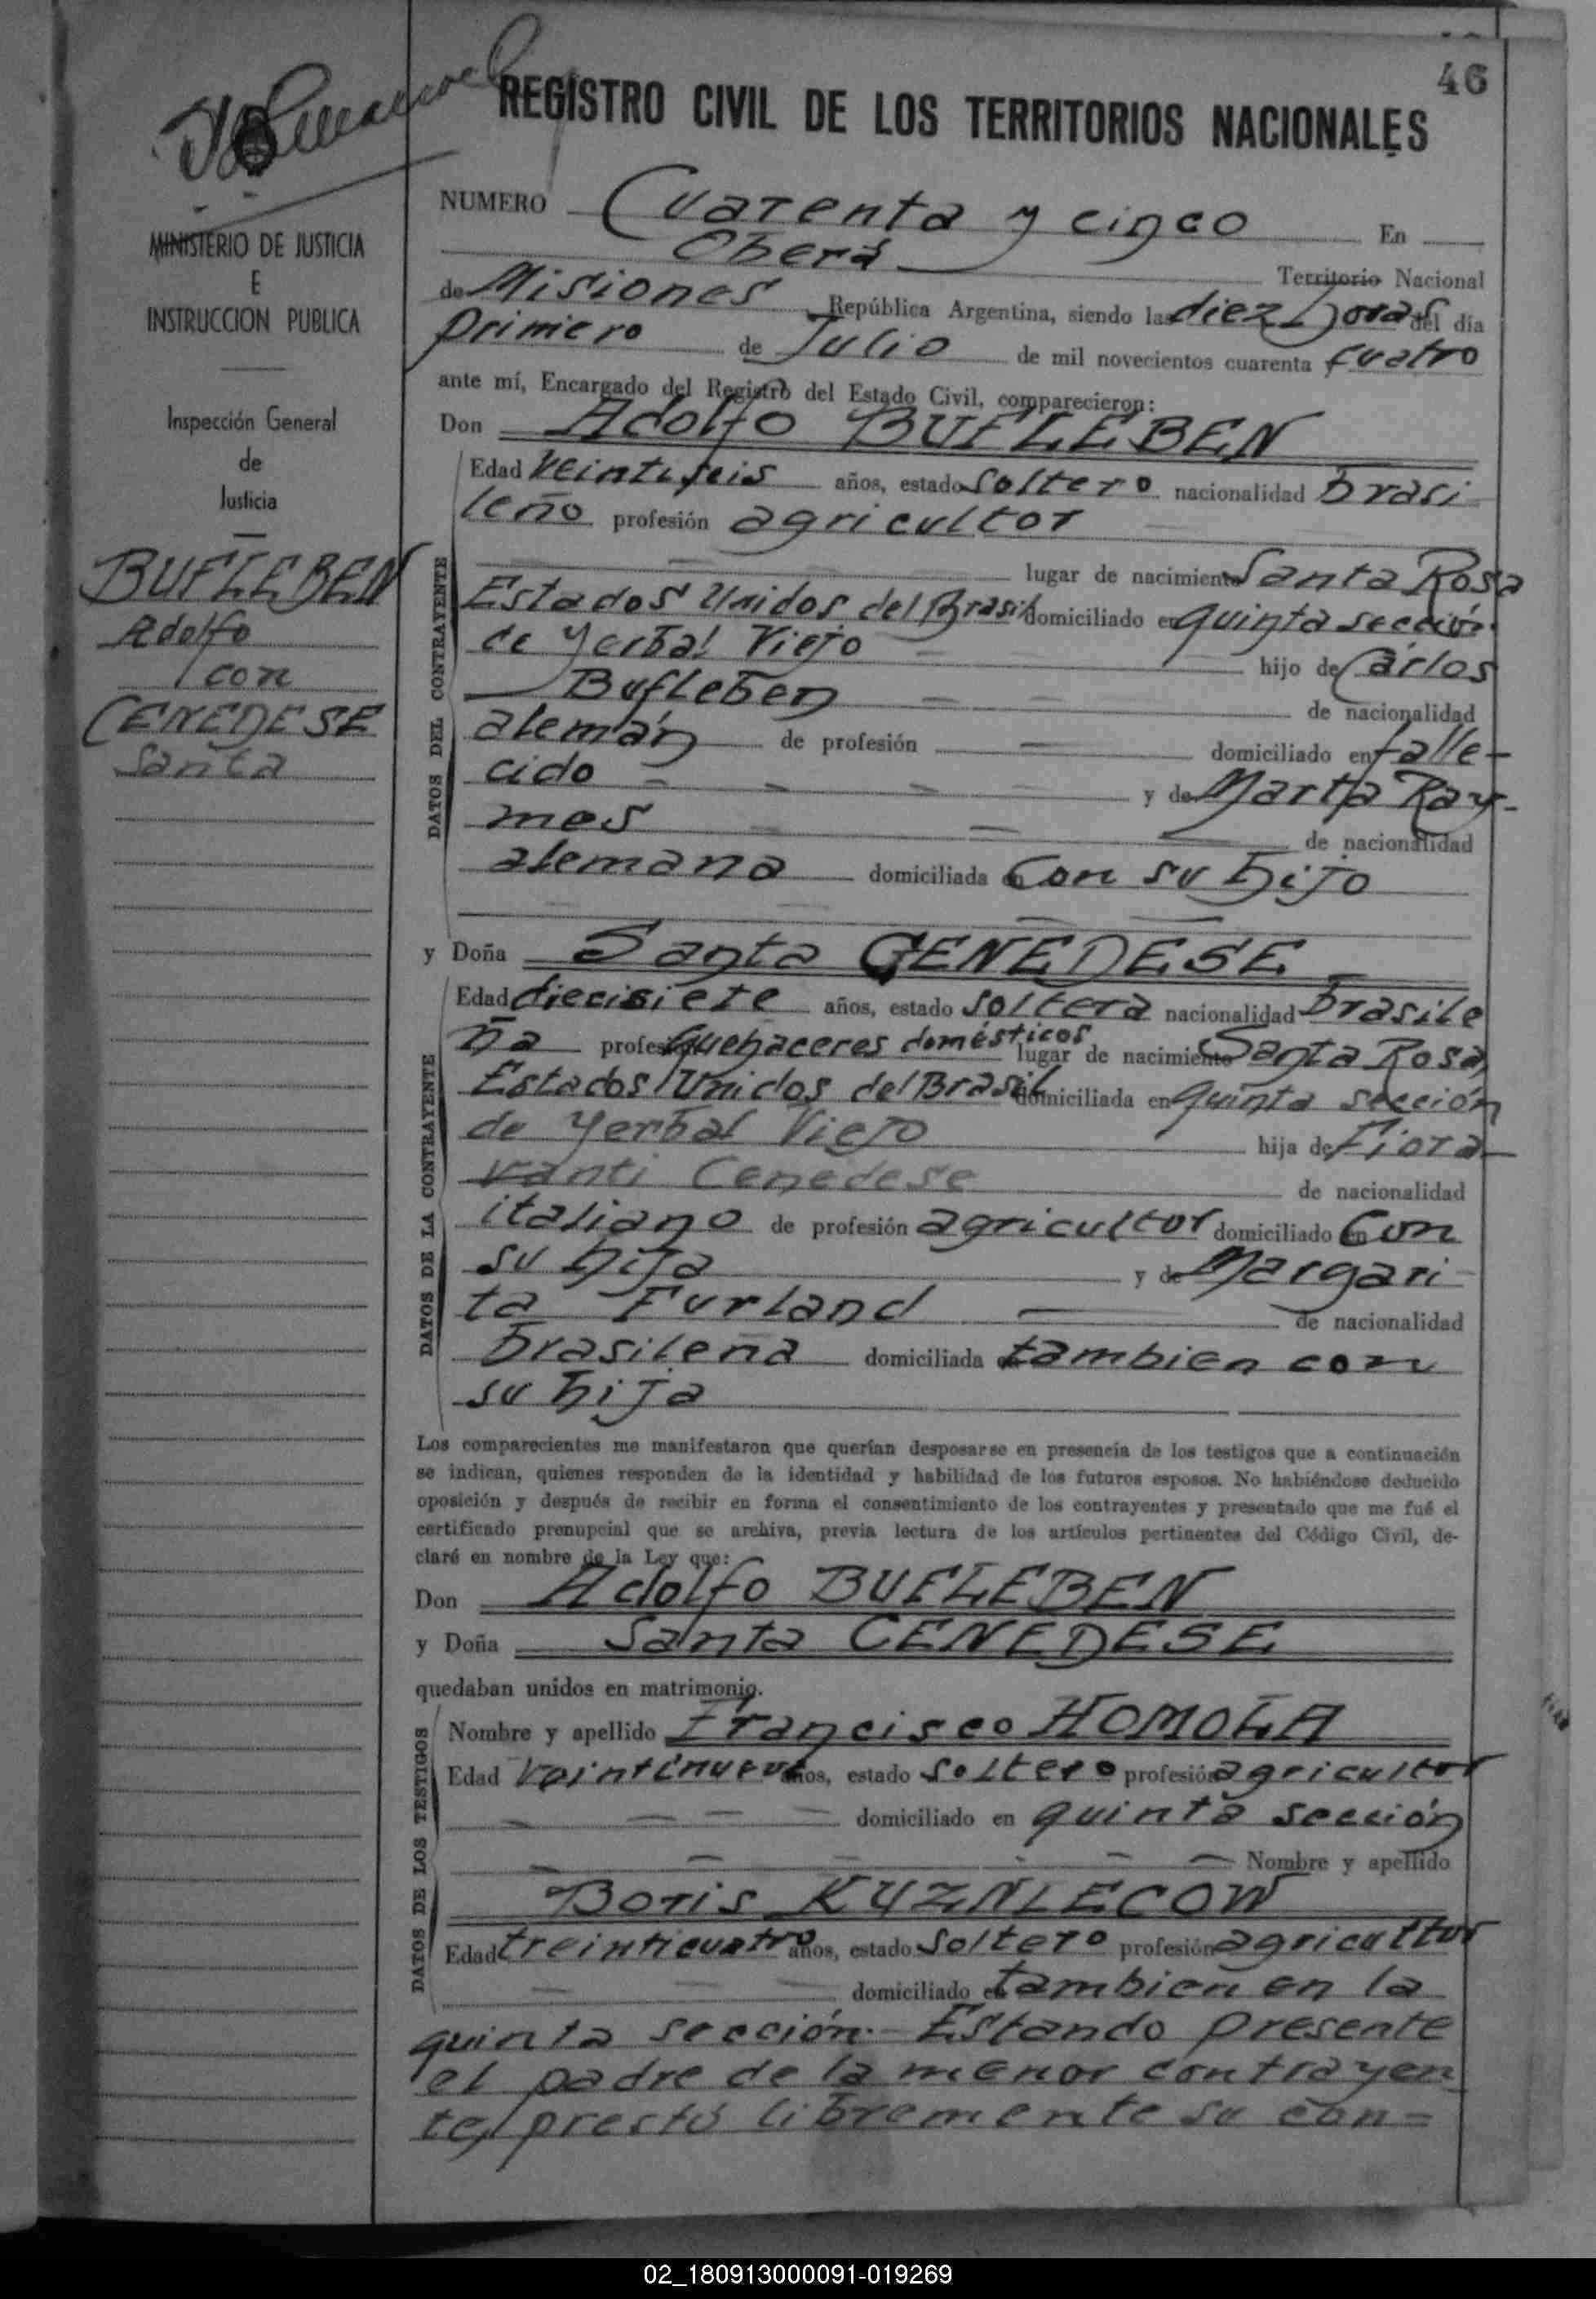 46
REGISTRO CIVIL DE LOS TERRITORIOS NACIONALES
MINISTERIO DE JUSTICIA
E
INSTRUCCION PUBLICA
Inspección General
de
Justicia
BUFLEBEN
Adolfo
con
CENEDESE
Santa
NUMERO Cuarenta y cinco En
Oberá Territorio Nacional
de Misiones República Argentina, siendo las diez horas del día
primero de Julio de mil novecientos cuarenta cuatro
ante mí, Encargado del Registro del Estado Civil, comparecieron:
Don Adolfo BUFLEBEN
DATOS DEL CONTRAYENTE
Edad veintiseis años, estado soltero nacionalidad brasi
leño profesión agricultor
lugar de nacimiento Santa Rosa
Estados Unidos del Brasil domiciliado en quinta sección
de Yerbal Viejo hijo de Cárlos
Bufleben de nacionalidad
alemán de profesión domiciliado en falle-
cido y de Marta Ray-
mes de nacionalidad
alemana domiciliada en con su hijo
y Doña Santa CENEDESE
DATOS DE LA CONTRAYENTE
Edad diecisiete años, estado soltera nacionalidad brasile
ña profesión quehaceres domésticos lugar de nacimiento Santa Rosa,
Estados Unidos del Brasil domiciliada en quinta sección
de Yerbal Viejo hija de Fiora-
vanti Cenedese de nacionalidad
italiano de profesión agricultor domiciliado en con
su hija y de Margari
ta Furland de nacionalidad
brasileña domiciliada en tambien con
su hija
Los comparecientes me manifestaron que querían desposarse en presencia de los testigos que a continuación
se indican, quienes responden de la identidad y habilidad de los futuros esposos. No habiéndose deducido
oposición y después de recibir en forma el consentimiento de los contrayentes y presentado que me fué el
certificado prenupcial que se archiva, previa lectura de los artículos pertinentes del Código Civil, de-
claré en nombre de la Ley que:
Don Adolfo BUFLEBEN
y Doña Santa CENEDESE
quedaban unidos en matrimonio.
DATOS DE LOS TESTIGOS
Nombre y apellido Francisco HOMOLA
Edad veintinueve años, estado soltero profesión agricultor
domiciliado en quinta sección
Nombre y apellido
Boris KUZNLECOW
Edad treinticuatro años, estado soltero profesión agricultor
domiciliado en tambien en la
quinta sección.- Estando presente
el padre de la menor contrayen
te, prestó libremente su con=
02_180913000091-019269